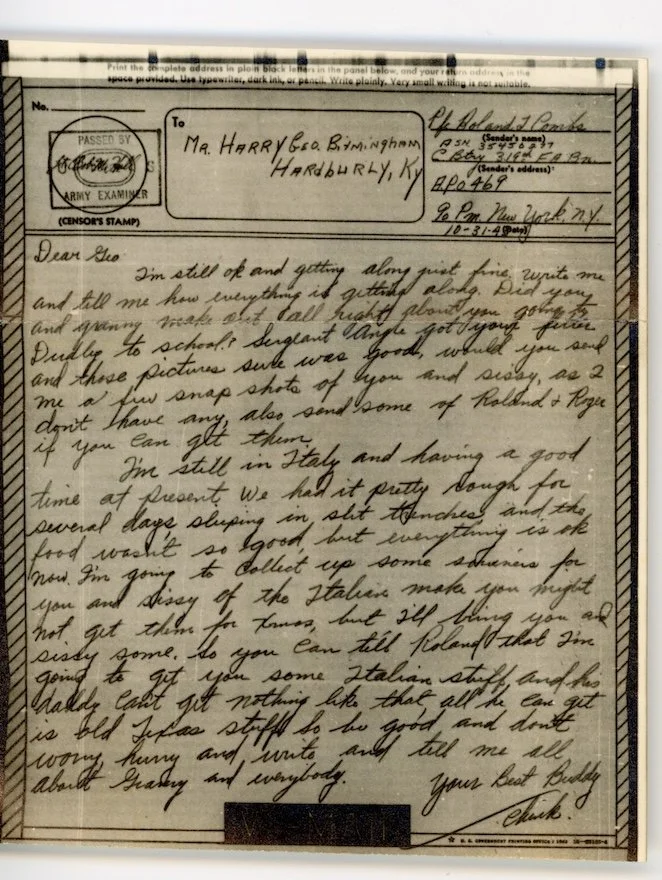 Print the complete address in plain block letters in the panel below, and your return address in the
space provided. Use typewriter, dark ink, or pencil. Write plainly. Very small writing is not suitable.
No.
PASSED BY
ARMY EXAMINER
(CENSOR'S STAMP)
To
MR. HARRY GEO. BIRMINGHAM
HARDBURLY, KY
Pfc Roland F Combs
(Sender's name)
ASN 354
C Btry 319th F.A. Bn.
(Sender's address)
APO 469
% Pm. New York, N.Y.
10-31-4 (Date)
Dear Geo
I'm still ok and getting along just fine, write me
and tell me how everything is getting along. Did you
and granny make out all right about you going to
Dudley to school? Sergeant Angle got your
and those pictures sure was good, would you send
me a few snap shots of you and sissy, as I
don't have any, also send some of Roland + Roger
if you can get them.
I'm still in Italy and having a good
time at present, We had it pretty rough for
several days, sleeping in slit trenches and the
food wasn't so good, but everything is ok
now. I'm going to collect up some for
you and sissy of the Italian make you might
not get them for Xmas, but I'll bring you and
sissy some. So you can tell Roland that I'm
going to get you some Italian stuff, and his
daddy can't get nothing like that, all he can get
is old Texas stuff. So be good and don't
worry, hurry and write and tell me all
about Granny and everybody.
Your Best Buddy
Chick.
V-MAIL
☆ U. S. GOVERNMENT PRINTING OFFICE : 1943